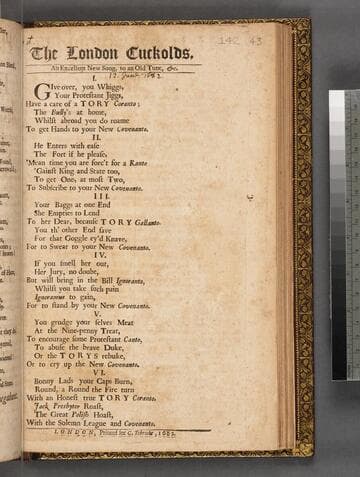 142 43
The London Cuckolds,
An Excellent New Song, to an Old Tune, &c.
12. June. 1682
I.
GIve over, you Whiggs,
Your Protestant Jiggs,
Have a care of a TORY Coranto;
The Bully's at home,
Whilst abroad you do roame
To get Hands to your New Covenanto.
II.
He Enters with ease
The Fort if he please,
'Mean time you are forc't for a Ranto
'Gainst King and State too,
To get One, at most Two,
To Subscribe to your New Covenanto.
III.
Your Baggs at one End
She Empties to Lend
To her Dear, because TORY Gallanto.
You th' other End save
For that Goggle ey'd Knave,
For to Swear to your New Covenanto.
IV.
If you smell her out,
Her Jury, no doubt,
But will bring in the Bill Ignoranto,
Whilst you take such pain
Ignoramus to gain,
For to stand by your New Covenanto.
V.
You grudge your selves Meat
At the Nine-penny Treat,
To encourage some Protestant Canto,
To abuse the brave Duke,
Or the TORYS rebuke,
Or to cry up the New Covenanto.
VI.
Bonny Lads your Caps Burn,
Round, a Round the Fire turn
With an Honest true TORY Coranto.
Jack Presbyter Roast,
The Great Polish Hoast,
With the Solemn League and Covenanto.
LONDON, Printed for C. Tebroc, 1682.